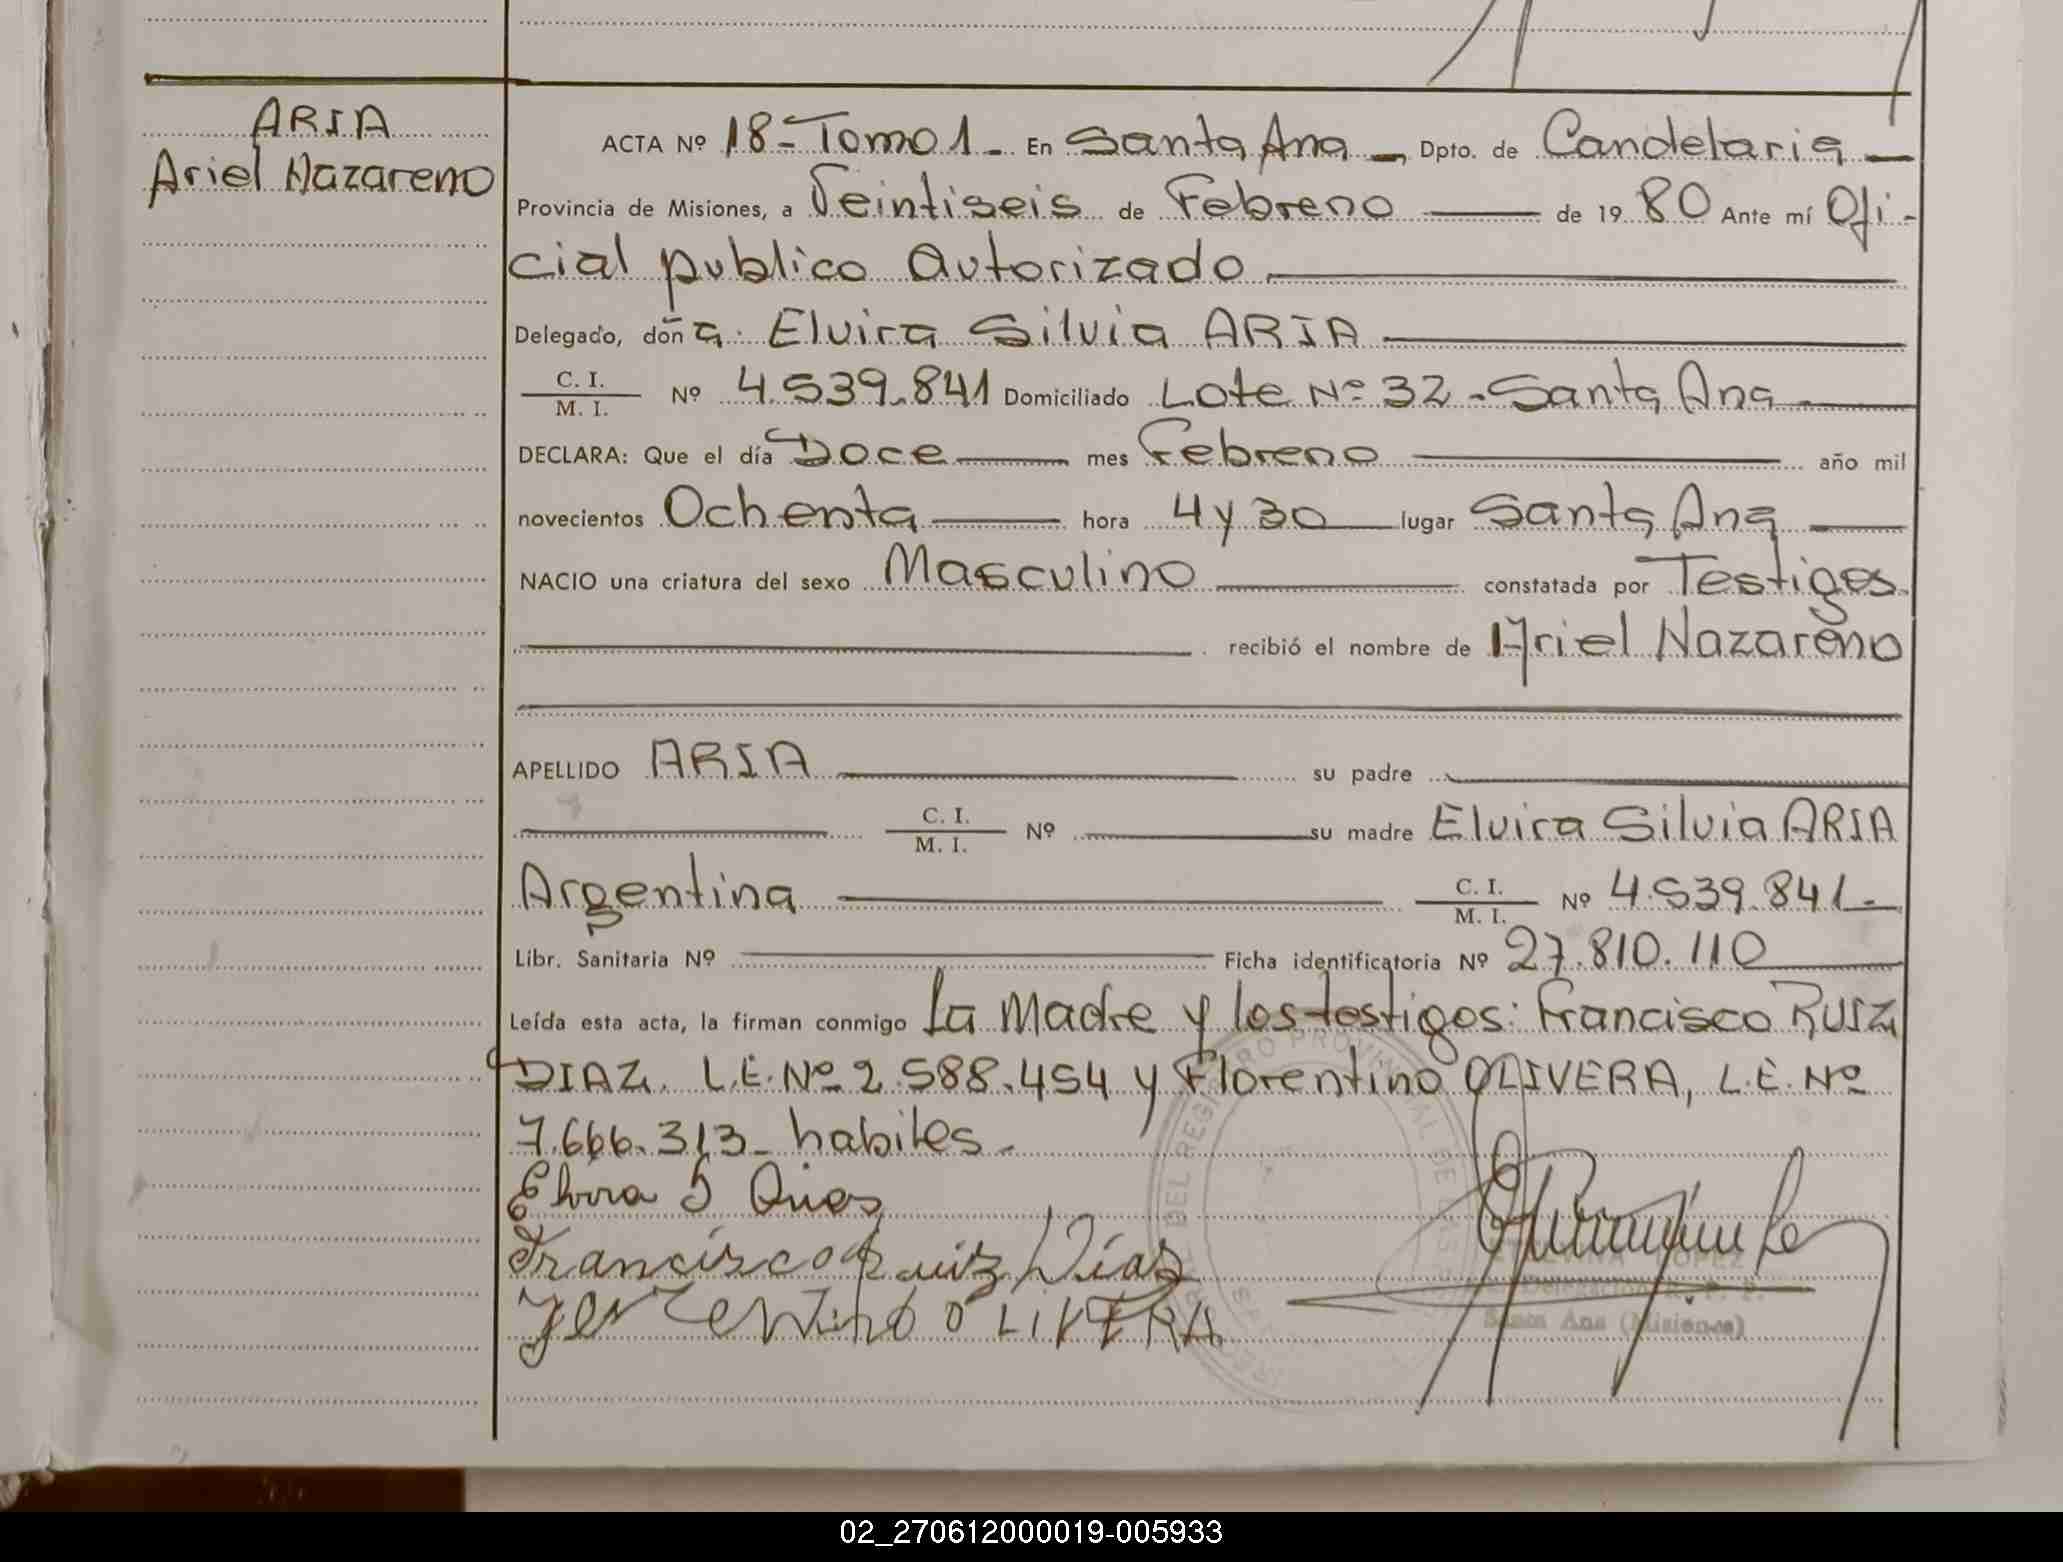 ARIA
Ariel Nazareno
ACTA Nº 18 - Tomo 1 - En Santa Ana - Dpto. de Candelaria -
Provincia de Misiones, a Veintiseis de Febrero — de 19 80 Ante mí Ofi-
cial publico Autorizado
Delegado, don a. Elvira Silvia ARIA
C. I.
M. I. Nº 4.539.841 Domiciliado Lote Nº 32 - Santa Ana
DECLARA: Que el día Doce mes Febrero año mil
novecientos Ochenta hora 4 y 30 lugar Santa Ana
NACIO una criatura del sexo Masculino constatada por Testigos.
recibió el nombre de Ariel Nazareno
APELLIDO ARIA su padre
C. I.
M. I. Nº su madre Elvira Silvia ARIA
Argentina C. I.
M. I. Nº 4.539.841.-
Libr. Sanitaria Nº Ficha identificatoria Nº 27.810.110
Leída esta acta, la firman conmigo La Madre y los testigos: Francisco RUIZ
DIAZ. L.E. Nº 2.588.454 y Florentino OLIVERA, L.E. Nº
7.666.313 - habiles.
Elvira S
Francisco Ruiz Días
OLIVERA
LOPEZ
Santa Ana (Misiones)
02_270612000019-005933